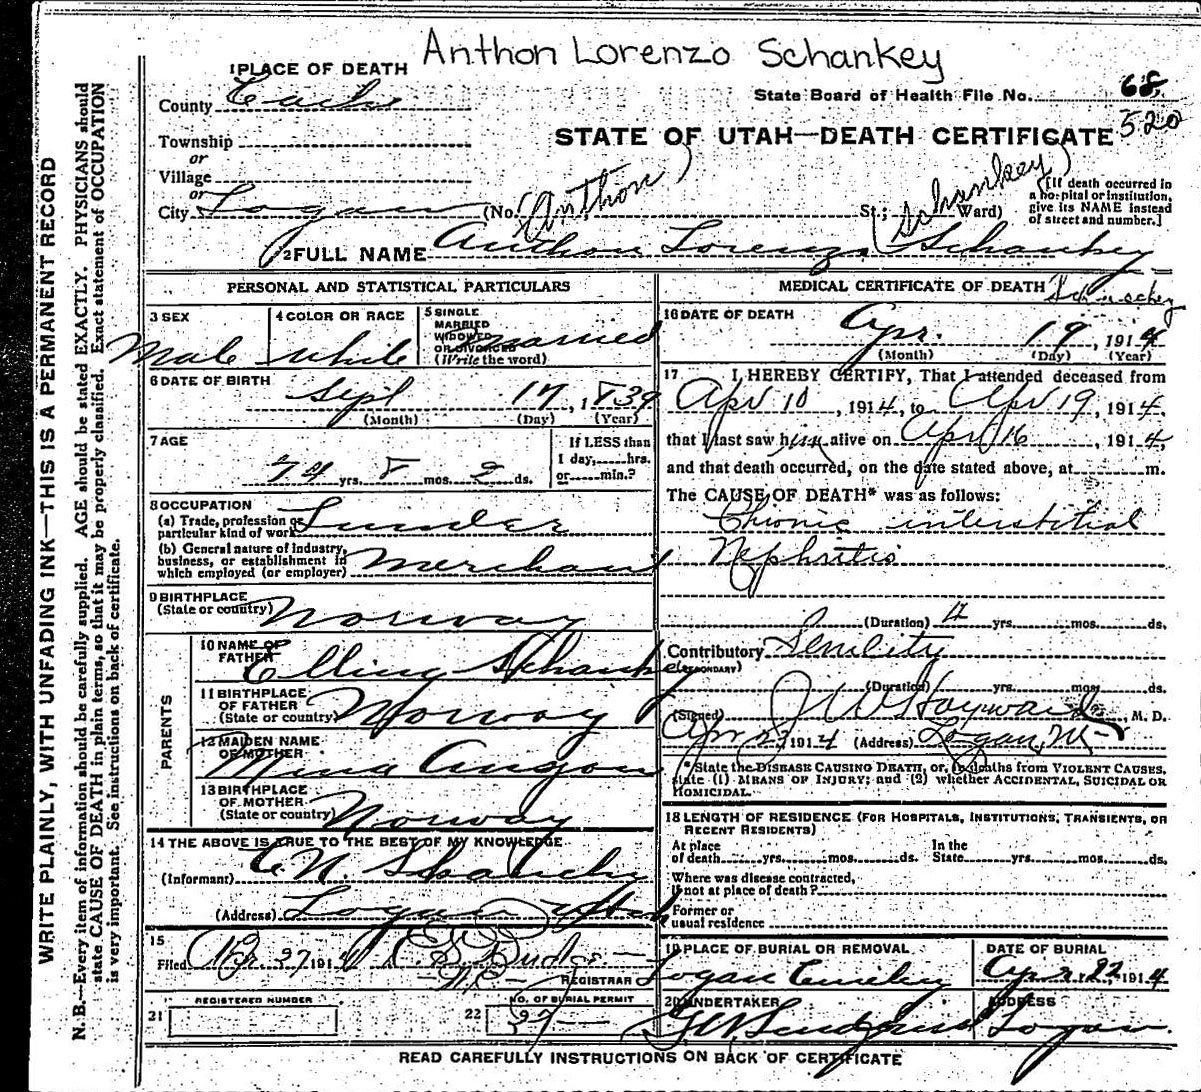 Anthon Lorenzo Schankey
1 PLACE OF DEATH
County Cache
State Board of Health File No. 68
520
Township
or
Village
or
City Logan (No. (Anthon) St.; Schankey) Ward)
STATE OF UTAH—DEATH CERTIFICATE
[If death occurred in
a hospital or institution,
give its NAME instead
of street and number.]
2 FULL NAME Anthon Lorenzo Schankey
PERSONAL AND STATISTICAL PARTICULARS
3 SEX
Male
4 COLOR OR RACE
white
5 SINGLE
MARRIED
WIDOWED
OR DIVORCED
(Write the word)
married
6 DATE OF BIRTH
Sept 17, 1839
(Month) (Day) (Year)
7 AGE
74 yrs. 8 mos. 2 ds.
If LESS than
1 day, hrs.
or min.?
8 OCCUPATION
(a) Trade, profession or
particular kind of work
(b) General nature of industry,
business, or establishment in
which employed (or employer) Merchant
9 BIRTHPLACE
(State or country) Norway
PARENTS
10 NAME OF
FATHER Elling Schankey
11 BIRTHPLACE
OF FATHER
(State or country) Norway
12 MAIDEN NAME
OF MOTHER Mina
13 BIRTHPLACE
OF MOTHER
(State or country) Norway
14 THE ABOVE IS TRUE TO THE BEST OF MY KNOWLEDGE
(Informant)
(Address) Logan Utah
15
Filed Apr. 27 1914
REGISTRAR
REGISTERED NUMBER
21
NO. OF BURIAL PERMIT
22 37
MEDICAL CERTIFICATE OF DEATH
16 DATE OF DEATH
Apr. 19, 1914
(Month) (Day) (Year)
17 I HEREBY CERTIFY, That I attended deceased from
Apr 10, 1914, to Apr 19, 1914,
that I last saw him alive on Apr 16, 1914,
and that death occurred, on the date stated above, at m.
The CAUSE OF DEATH* was as follows:
Chronic interstitial
Nephritis
(Duration) yrs. mos. ds.
Contributory Senility
(SECONDARY)
(Duration) yrs. mos. ds.
(Signed) J W Hayward, M. D.
Apr 1914 (Address) Logan,
*State the DISEASE CAUSING DEATH, or, in deaths from VIOLENT CAUSES,
state (1) MEANS OF INJURY; and (2) whether ACCIDENTAL, SUICIDAL OR
HOMICIDAL.
18 LENGTH OF RESIDENCE (FOR HOSPITALS, INSTITUTIONS, TRANSIENTS, OR
RECENT RESIDENTS)
At place
of death yrs. mos. ds.
In the
State yrs. mos. ds.
Where was disease contracted,
if not at place of death?
Former or
usual residence
19 PLACE OF BURIAL OR REMOVAL
Logan
DATE OF BURIAL
Apr. 22, 1914
20 UNDERTAKER
ADDRESS
Logan.
READ CAREFULLY INSTRUCTIONS ON BACK OF CERTIFICATE
WRITE PLAINLY, WITH UNFADING INK—THIS IS A PERMANENT RECORD
N. B.—Every item of information should be carefully supplied. AGE should be stated EXACTLY. PHYSICIANS should
state CAUSE OF DEATH in plain terms, so that it may be properly classified. Exact statement of OCCUPATION
is very important. See instructions on back of certificate.